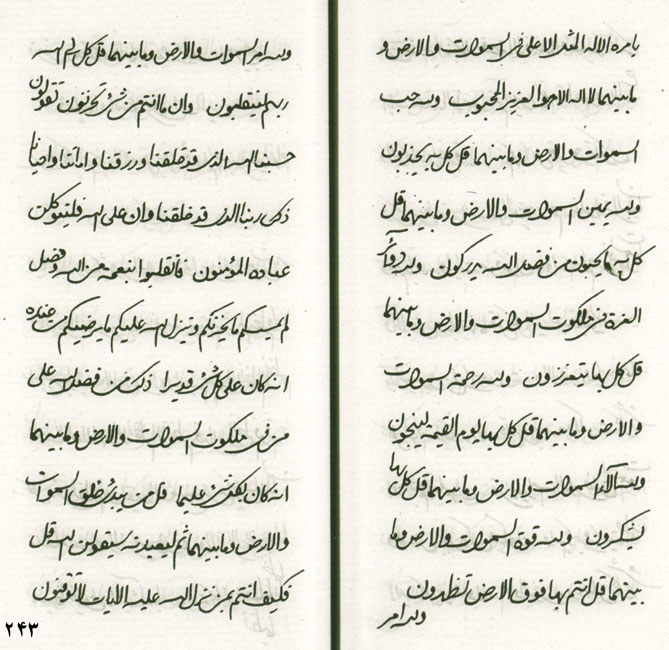 بامره الا له المثل الاعلى فى السموات والارض و
ما بينهما لا اله الا هو العزيز المحبوب ولله حب
السموات والارض وما بينهما قل كل به يجذبون
ولله يمين السموات والارض وما بينهما قل
كل به ما يحبون من فضل الله يدركون ولله
العزة فى ملكوت السموات والارض وما بينهما
قل كل بها يتعززون ولله رحمة السموات
والارض وما بينهما قل كل بها يوم القيمة لينجون
ولله آلاء السموات والارض وما بينهما قل كل بها
ليشكرون ولله قوة السموات والارض وما
بينهما قل انتم بها فوق الارض تظهرون
ولله امر
ولله امر السموات والارض وما بينهما قل كل الى الله
ربهم لينقلبون وان ما انتم من شئ تحزنون تقولون
حسبنا الله الذى قد خلقنا ورزقنا واماتنا واحيانا
ذلك ربنا الذى قد خلقنا وان على الله فليتوكلن
عباده المؤمنون فانقلبوا بنعمة من الله وفضل
لم يمسكم ما يحزنكم وينزل الله عليكم ما يرضيكم من عنده
انه كان على كل شئ قديرا ذلك من فضل الله على
من فى ملكوت السموات والارض وما بينهما
انه كان بكل شئ عليما قل من يبدئ خلق السموات
والارض وما بينهما ثم ليعيدنه سيقولن الله قل
فكيف انتم بمن نزل الله عليه الايات لا توقنون
٢٤٣